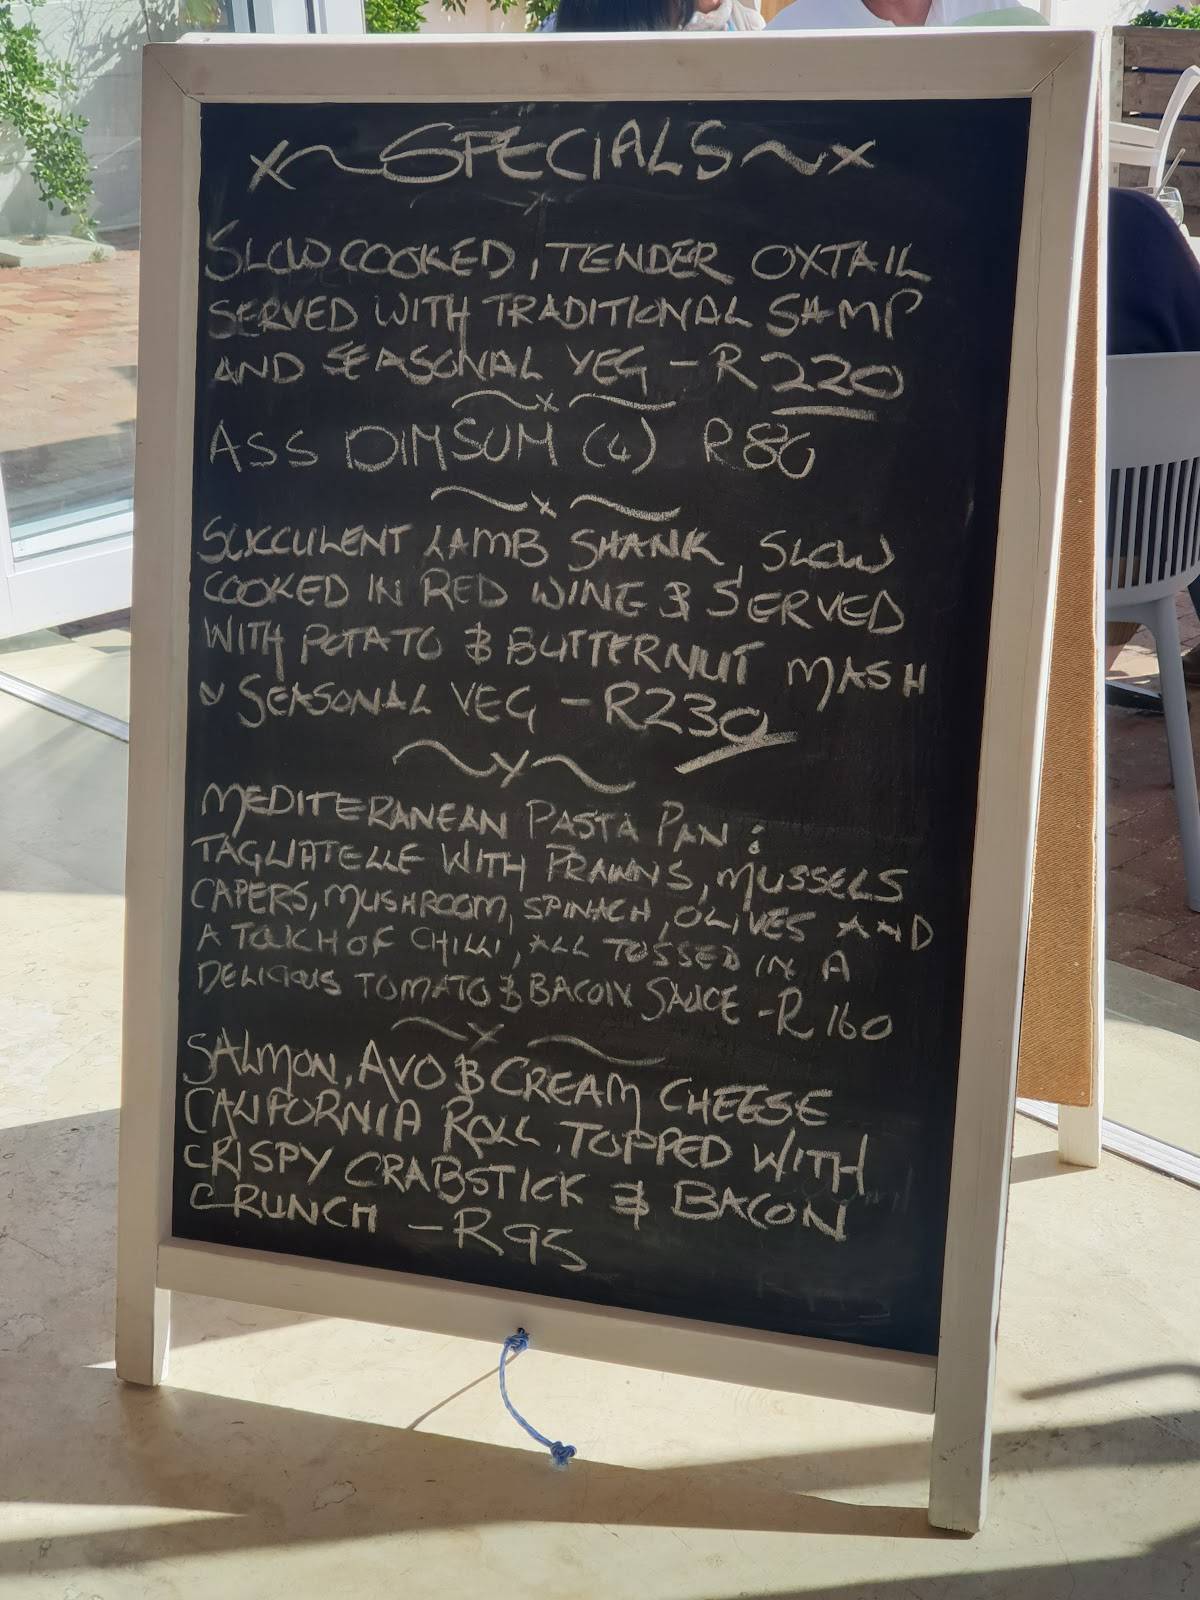 x~SPECIALS~x
SLOW COOKED, TENDER OXTAIL
SERVED WITH TRADITIONAL SAMP
AND SEASONAL VEG - R 220
~x~
ASS DIMSUM (4) R80
~x~
SUCCULENT LAMB SHANK, SLOW
COOKED IN RED WINE & SERVED
WITH POTATO & BUTTERNUT MASH
~ SEASONAL VEG - R230
~x~
MEDITERANEAN PASTA PAN:
TAGLIATELLE WITH PRAWNS, MUSSELS
CAPERS, MUSHROOM, SPINACH, OLIVES AND
A TOUCH OF CHILLI, ALL TOSSED IN A
DELICIOUS TOMATO & BACON SAUCE - R 160
~x~
SALMON, AVO & CREAM CHEESE
CALIFORNIA ROLL, TOPPED WITH
CRISPY CRABSTICK & BACON
CRUNCH - R95